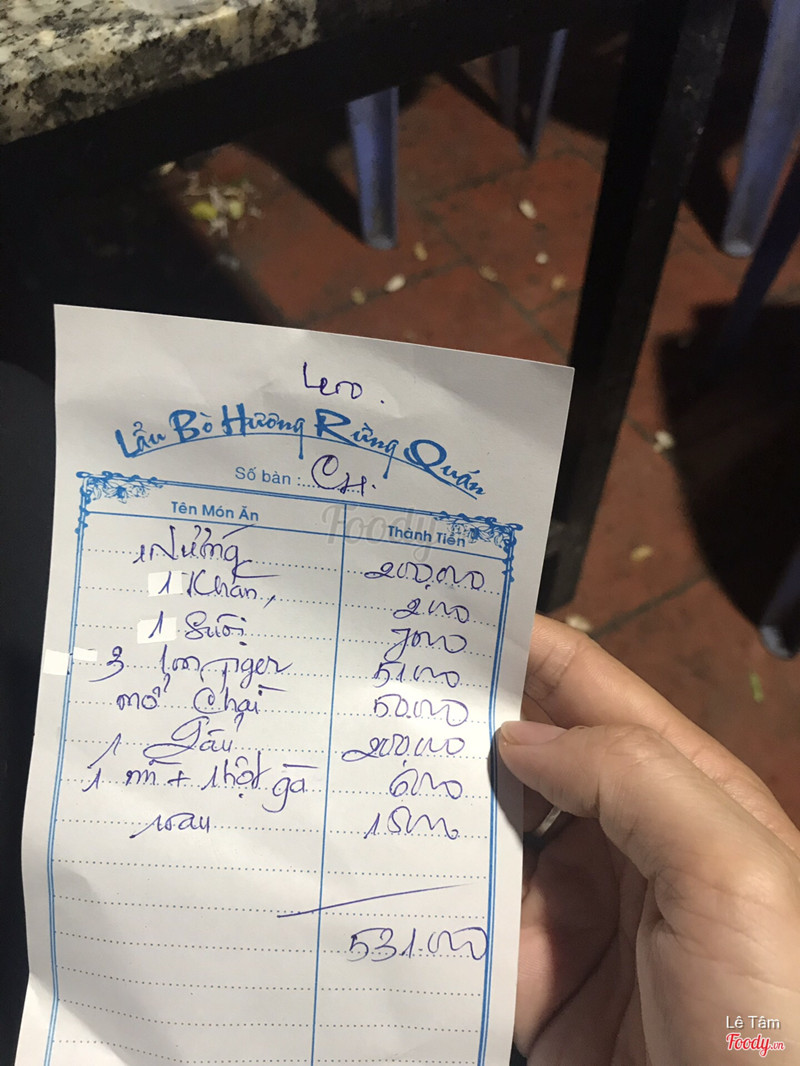 Lẩu Bò Hương Rừng Quán
Số bàn :
Tên Món Ăn Thành Tiền
1 Nướng 200.000
1 Khăn 2000
1 Suối 7000
3 lon Tiger 51000
mở chai 50.000
1 Gầu 200.000
1 mì + 1 hột gà 6000
rau 15000
531.000
Foody
Lê Tâm
Foody.vn